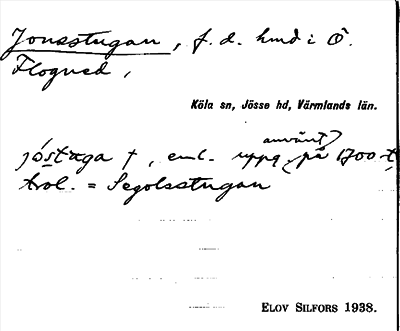 Jonsstugan, f. d. hmd i Ö.
Flogned,
Köla sn, Jösse hd, Värmlands län.
använt
jóstuga †, enl. uppg. på 1700 t,
trol. = Segolsstugan
ELOV SILFORS 1938.